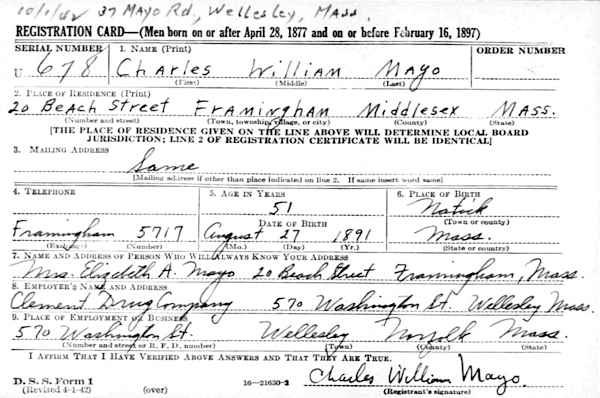 10/1/42 37 Mayo Rd., Wellesley, Mass.
REGISTRATION CARD—(Men born on or after April 28, 1877 and on or before February 16, 1897)
SERIAL NUMBER 1. NAME (Print) ORDER NUMBER
U 678 Charles William Mayo
(First) (Middle) (Last)
2. PLACE OF RESIDENCE (Print)
20 Beach Street Framingham Middlesex Mass.
(Number and street) (Town, township, village, or city) (County) (State)
[THE PLACE OF RESIDENCE GIVEN ON THE LINE ABOVE WILL DETERMINE LOCAL BOARD
JURISDICTION; LINE 2 OF REGISTRATION CERTIFICATE WILL BE IDENTICAL]
3. MAILING ADDRESS
Same
[Mailing address if other than place indicated on line 2. If same insert word same]
4. TELEPHONE 5. AGE IN YEARS 6. PLACE OF BIRTH
51 Natick
DATE OF BIRTH (Town or county)
Framingham 5717 August 27 1891 Mass.
(Exchange) (Number) (Mo.) (Day) (Yr.) (State or country)
7. NAME AND ADDRESS OF PERSON WHO WILL ALWAYS KNOW YOUR ADDRESS
Mrs. Elizabeth A. Mayo 20 Beach Street Framingham, Mass.
8. EMPLOYER'S NAME AND ADDRESS
Clement Drug Company 570 Washington St. Wellesley Mass.
9. PLACE OF EMPLOYMENT OR BUSINESS
570 Washington St. Wellesley Norfolk Mass.
(Number and street or R. F. D. number) (Town) (County) (State)
I AFFIRM THAT I HAVE VERIFIED ABOVE ANSWERS AND THAT THEY ARE TRUE.
D. S. S. Form 1 Charles William Mayo
(Revised 4-1-42) (over) 16—21630-2 (Registrant's signature)